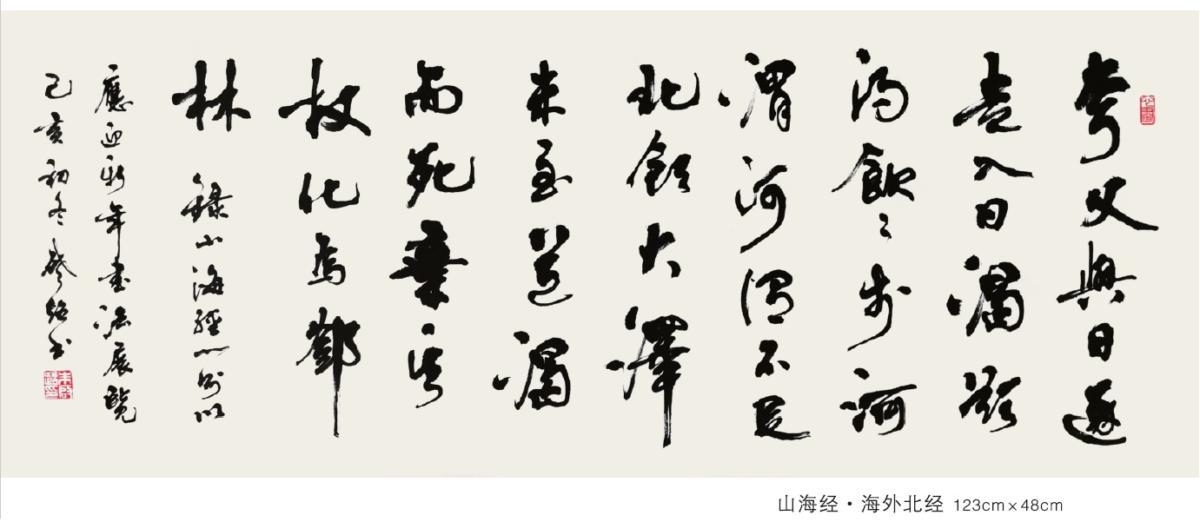 夸父與日逐
走入日渴欲
得飲〻於河
渭河渭不足
北飲大澤
未至道渴
而死棄其
杖化為鄧
林 錄山海經一則以
應迎新年書法展覽
己亥初冬 書
山海经·海外北经 123cm×48cm